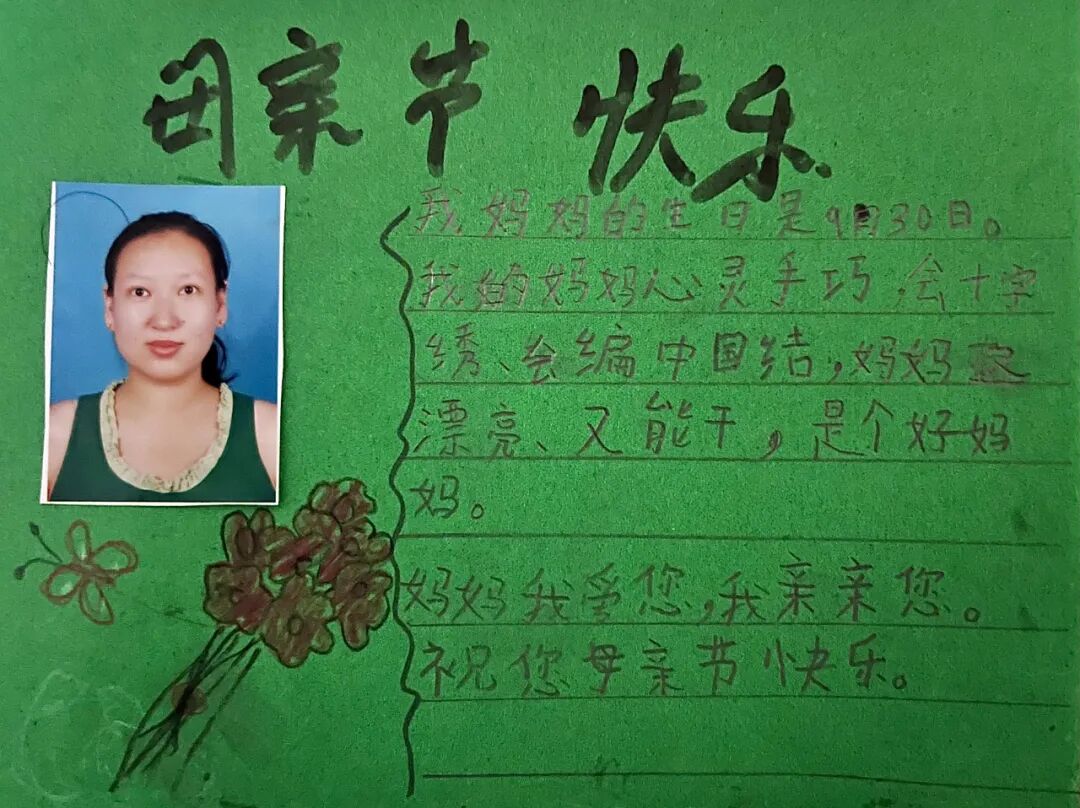 母亲节 快乐
我妈妈的生日是9月30日。
我的妈妈心灵手巧,会十字
绣、会编中国结,妈妈
漂亮、又能干,是个好妈
妈。
妈妈我爱您,我亲亲您。
祝您母亲节快乐。